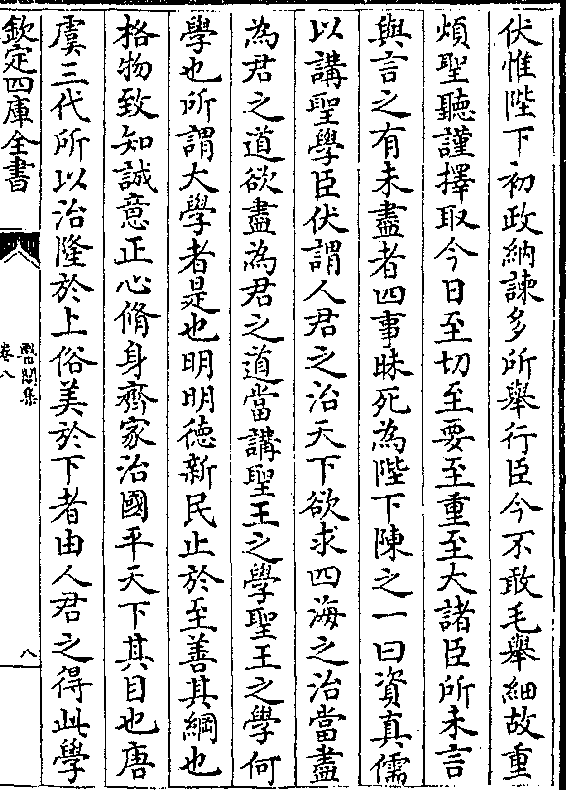 伏惟陛下初政納諫多所舉行臣今不敢毛舉細故重
煩聖聽謹擇取今日至切至要至重至大諸臣所未言
與言之有未盡者四事昧死為陛下陳之一曰資真儒
以講聖學臣伏謂人君之治天下欲求四海之治當盡
為君之道欲盡為君之道當講聖王之學聖王之學何
學也所謂大學者是也明明徳新民止於至善其綱也
格物致知誠意正心脩身齊家治國平天下其目也唐
虞三代所以治隆於上俗美於下者由人君之得此學
欽定四庫全書
醫閭集
卷八
八